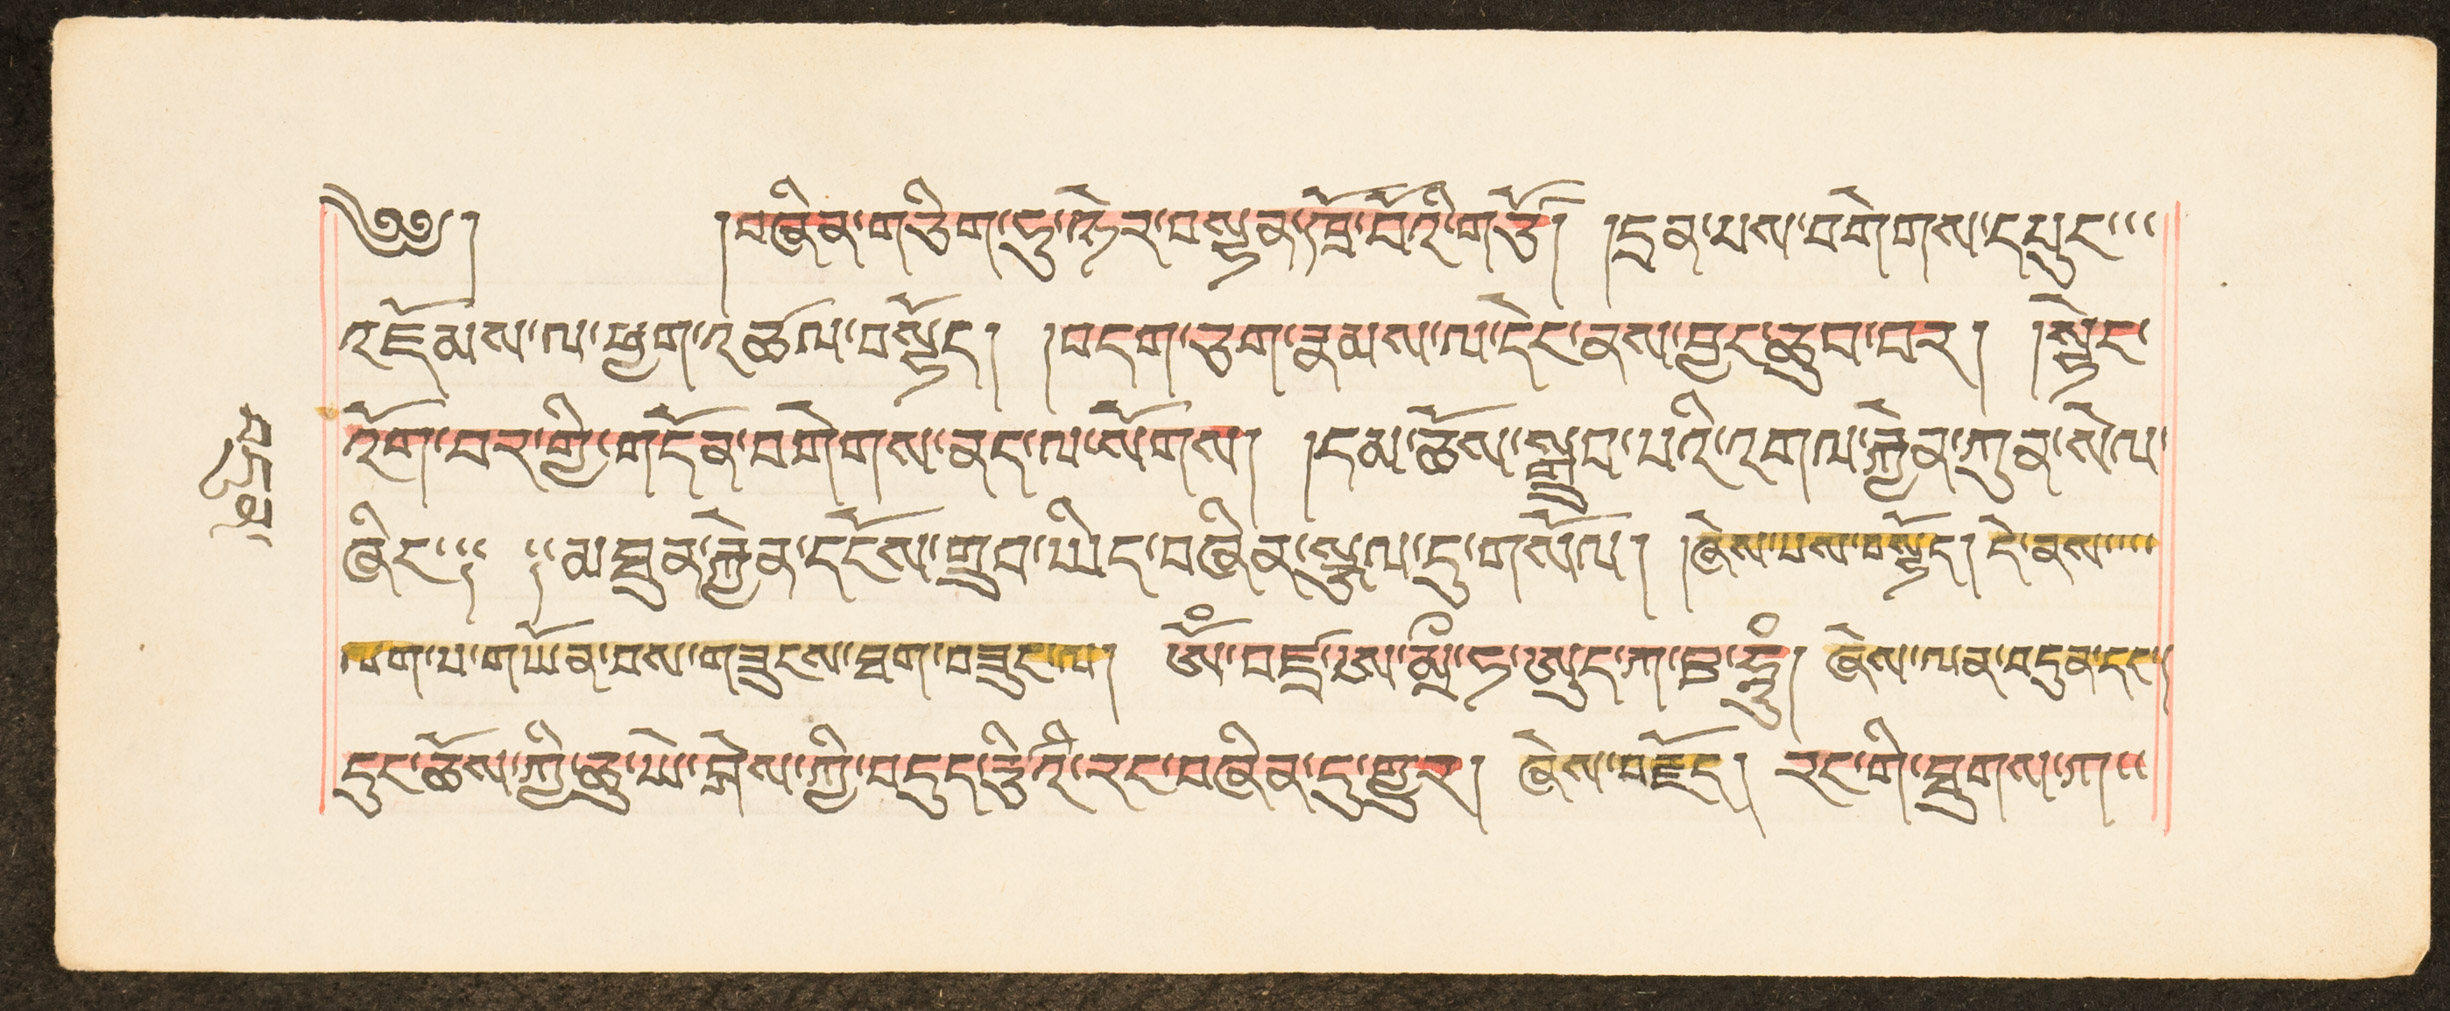 ༄༅། །བཞིན་གཅིག་ཏུ་ཧེར་བསྟན་ཁྲོ་བོའི་གཙོ། །དྲན་པས་བགེགས་དཔུང་
འཇོམས་ལ་ཕྱག་འཚལ་བསྟོད། །བདག་ཅག་རྣམས་ལ་དེང་ནས་བྱང་ཆུབ་བར། །སྟེང་
འོག་བར་གྱི་གདོན་བགེགས་ནད་ལ་སོགས། །དམ་ཆོས་སྒྲུབ་པའི་འགལ་རྐྱེན་ཀུན་སེལ་
ཞིང་། །མཐུན་རྐྱེན་དངོས་གྲུབ་ཡིད་བཞིན་སྩལ་དུ་གསོལ། །ཞེས་པས་བསྟོད། དེ་ནས་
ལག་པ་གཡོན་པས་གཟུངས་ཐག་བཟུང་ལ། ཨོཾ་བཛྲ་ཨ་མྲྀ་ཏ་ཨུད་ཀ་ཋ་ཧཱུྃ། ཞེས་ལན་བདུན་དང་།
དུང་ཆོས་ཀྱི་ཆུ་ཡེ་ཤེས་ཀྱི་བདུད་རྩིའི་རང་བཞིན་དུ་གྱུར། ཞེས་བརྗོད། རང་གི་ཐུགས་ཀ་